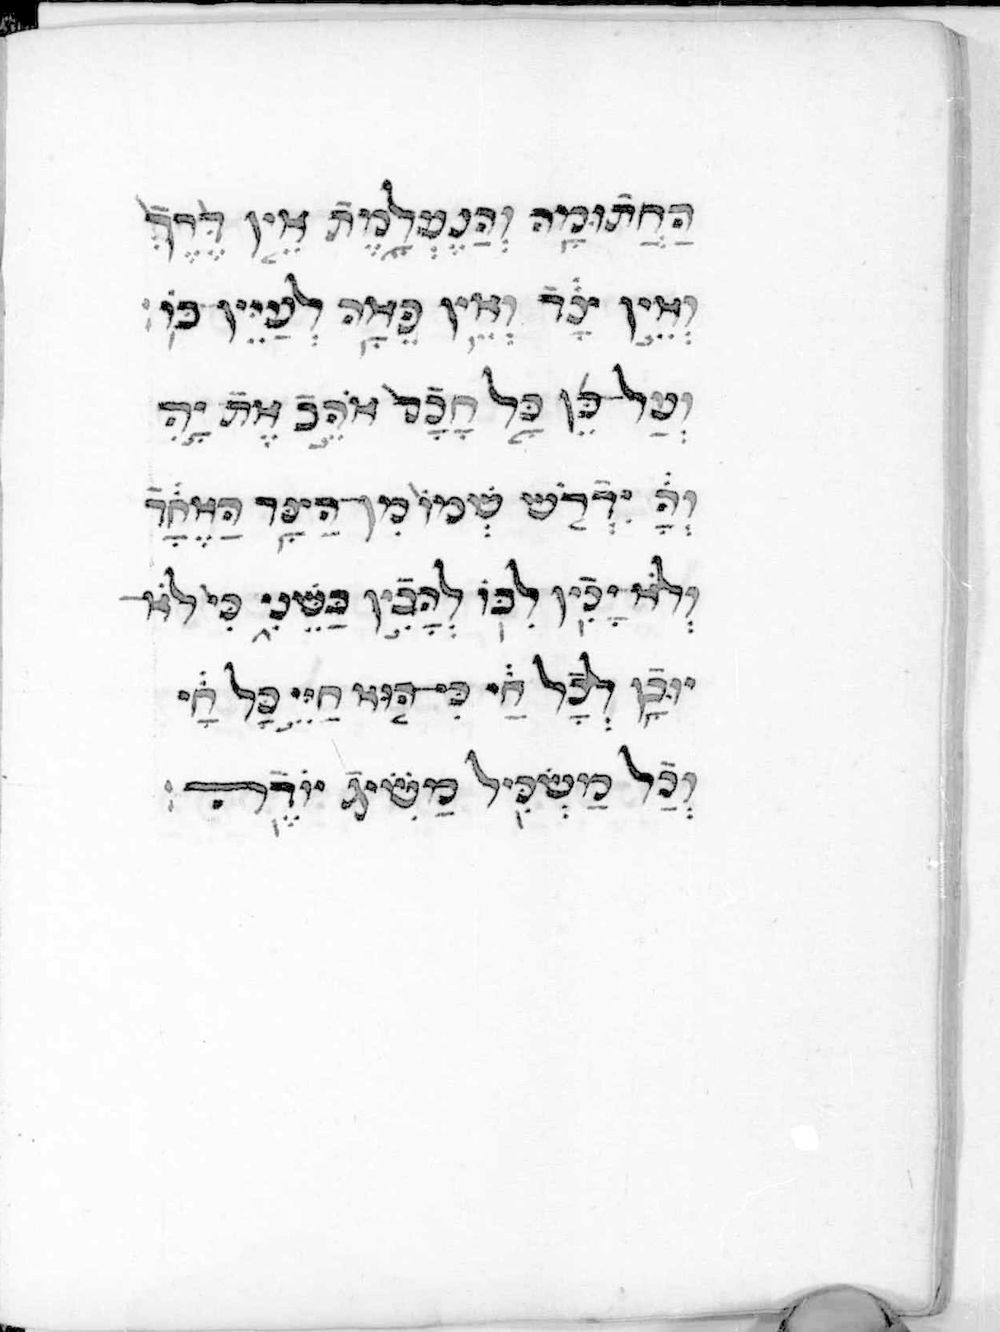 הַחֲתוּמָה וְהַנֶעְלָמֶת אֵין דֶרֶךְ
וְאֵין יָד וְאֵין פֵאָה לְעַיֵין בוֹ׃
וְעַל כֵן כָל חָכָם אֹהֵב אֶת יָהִ
וְהָ יִדְרַשׁ שְׁמוֹ מִן הַיָד הַאֶחָד
וְלֹא יָכִין לִבּוֹ לְהָבִין בַשֵׁנִי כִי לֹא
יוּבָן לְכָל חַי כִי הוּא חַיֵי כָל חָי
וְכַל מַשְׂכִיל מַשִׂיג יוֹדֵ׃